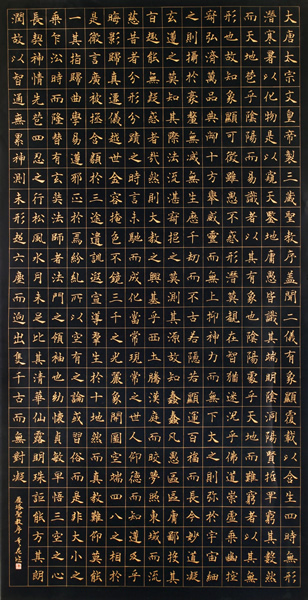 大唐太宗文皇帝製聖教序蓋聞二儀有象顯覆載以含生四時無形
潛寒暑以化物是以窺天鑑地庸愚皆識其端明陰洞陽賢哲罕窮其數然
而天地苞乎陰陽而易識者以其有象也陰陽處乎天地而難窮者以其無
形也故知象顯可徵雖愚不惑形潛莫覩在智猶迷況乎佛道崇虛乘幽控
寂弘濟萬品典御十方舉威靈而無上抑神力而無下大之則彌於宇宙細
之則攝於毫釐無滅無生歷千劫而不古若隱若顯運百福而長今妙道凝
玄遵之莫知其際法流湛寂挹之莫測其源故知蠢蠢凡愚區區庸鄙投其
旨趣能無疑惑者哉然則大教之興基乎西土騰漢庭而皎夢照東域而流
慈昔者分形分跡之時言未馳而成化當常現常之世民仰德而知遵及乎
晦影歸真遷儀越世金容掩色不鏡三千之光麗象開圖空端四八之相於
是微言廣被拯含類於三途遺訓遐宣導群生於十地然而真教難仰莫能
一其指歸曲學易遵邪正於焉紛糾所以空有之論或習俗而是非大小之
乘乍沿時而隆替有玄奘法師者法門之領袖也幼懷貞敏早悟三空之心
長契神情先苞四忍之行松風水月未足比其清華仙露明珠詎能方其朗
潤故以智通無累神測未形超六塵而迥出隻千古而無對凝
雁塔聖教序